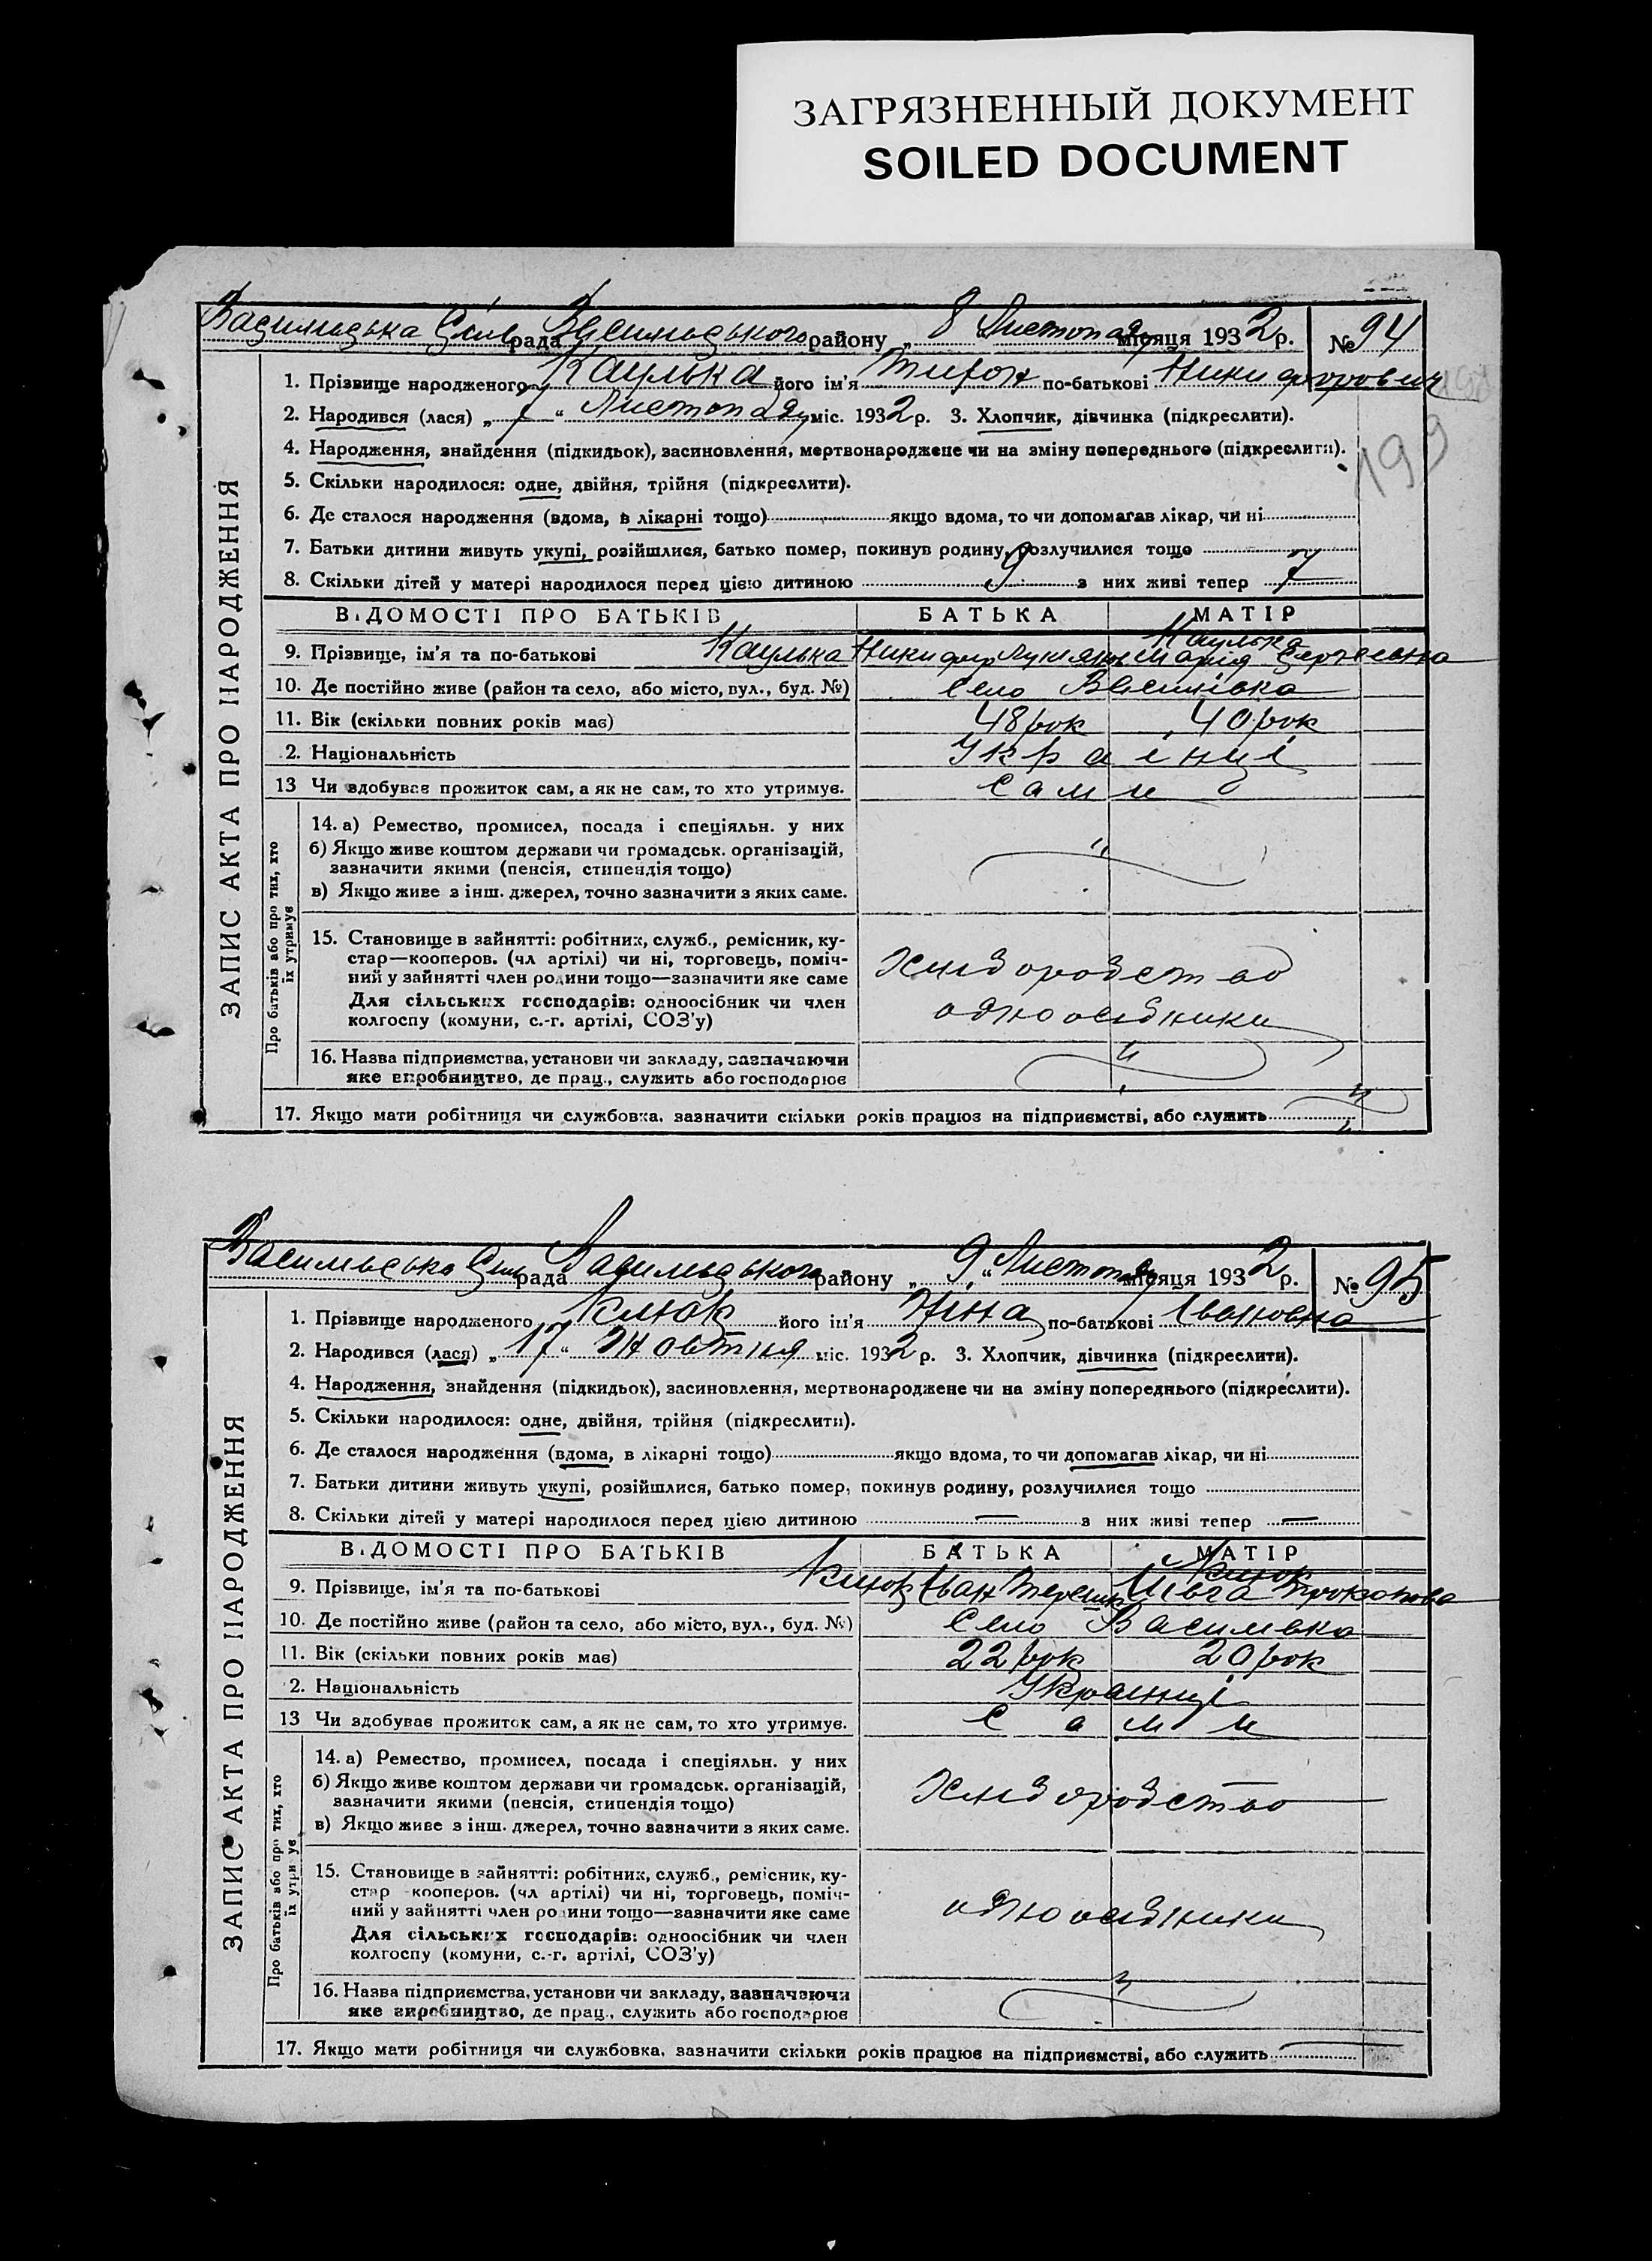 ЗАГРЯЗНЕННЫЙ ДОКУМЕНТ
SOILED DOCUMENT
Васильська Сіль рада Васильського району „ 8 Листопаду місяця 1932 р. № 94
ЗАПИС АКТА ПРО НАРОДЖЕННЯ
1. Прізвище народженого Каулька його ім'я Тирон по-батькові Никифорович
2. Народився (лася) „ 7 “ Листопаду міс. 1932 р. 3. Хлопчик, дівчинка (підкреслити).
199
4. Народження, знайдення (підкидьок), засиновлення, мертвонароджене чи на зміну попереднього (підкреслити).
5. Скільки народилося: одне, двійня, трійня (підкреслити).
6. Де сталося народження (вдома, в лікарні тощо) якщо вдома, то чи допомагав лікар, чи ні
7. Батьки дитини живуть укупі, розійшлися, батько помер, покинув родину, розлучилися тощо
8. Скільки дітей у матері народилося перед цією дитиною 9 з них живі тепер 7
ВІДОМОСТІ ПРО БАТЬКІВ БАТЬКА МАТІР
9. Прізвище, ім'я та по-батькові Каулька Никифор Каулька Марія
10. Де постійно живе (район та село, або місто, вул., буд. №) Село Василівка
11. Вік (скільки повних років має) 48 рок 40 рок
2. Національність Українці
13 Чи здобуває прожиток сам, а як не сам, то хто утримує. Сами
Про батьків або про тих, хто їх утримує
14. а) Ремество, промисел, посада і спеціяльн. у них
б) Якщо живе коштом держави чи громадськ. організацій,
зазначити якими (пенсія, стипендія тощо)
в) Якщо живе з інш. джерел, точно зазначити з яких саме.
15. Становище в зайнятті: робітник, служб., ремісник, ку-
стар—кооперов. (чл артілі) чи ні, торговець, поміч-
ний у зайнятті член родини тощо—зазначити яке саме
Для сільських господарів: одноосібник чи член
колгоспу (комуни, с.-г. артілі, СОЗ'у)
Хлібородство
одноосібники
16. Назва підприємства, установи чи закладу, зазначаючи
яке виробництво, де прац., служить або господарює
17. Якщо мати робітниця чи службовка, зазначити скільки років працює на підприємстві, або служить
Васильська Сіль рада Васильського району „ 9 “ Листопаду місяця 1932 р. № 95
ЗАПИС АКТА ПРО НАРОДЖЕННЯ
1. Прізвище народженого Клюк його ім'я Ніна по-батькові Івановна
2. Народився (лася) „ 17 “ Жовтня міс. 1932 р. 3. Хлопчик, дівчинка (підкреслити).
4. Народження, знайдення (підкидьок), засиновлення, мертвонароджене чи на зміну попереднього (підкреслити).
5. Скільки народилося: одне, двійня, трійня (підкреслити).
6. Де сталося народження (вдома, в лікарні тощо) якщо вдома, то чи допомагав лікар, чи ні
7. Батьки дитини живуть укупі, розійшлися, батько помер, покинув родину, розлучилися тощо
8. Скільки дітей у матері народилося перед цією дитиною — з них живі тепер —
ВІДОМОСТІ ПРО БАТЬКІВ БАТЬКА МАТІР
9. Прізвище, ім'я та по-батькові Клюк Іван Клюк Прокопова
10. Де постійно живе (район та село, або місто, вул., буд. №) Село Василевка
11. Вік (скільки повних років має) 22 рок 20 рок
2. Національність Українці
13 Чи здобуває прожиток сам, а як не сам, то хто утримує. Сами
Про батьків або про тих, хто їх утримує
14. а) Ремество, промисел, посада і спеціяльн. у них
б) Якщо живе коштом держави чи громадськ. організацій,
зазначити якими (пенсія, стипендія тощо)
в) Якщо живе з інш. джерел, точно зазначити з яких саме.
Хлібородство
15. Становище в зайнятті: робітник, служб., ремісник, ку-
стар кооперов. (чл артілі) чи ні, торговець, поміч-
ний у зайнятті член родини тощо—зазначити яке саме
Для сільських господарів: одноосібник чи член
колгоспу (комуни, с.-г. артілі, СОЗ'у)
одноосібники
16. Назва підприємства, установи чи закладу, зазначаючи
яке виробництво, де прац., служить або господарює
17. Якщо мати робітниця чи службовка, зазначити скільки років працює на підприємстві, або служить